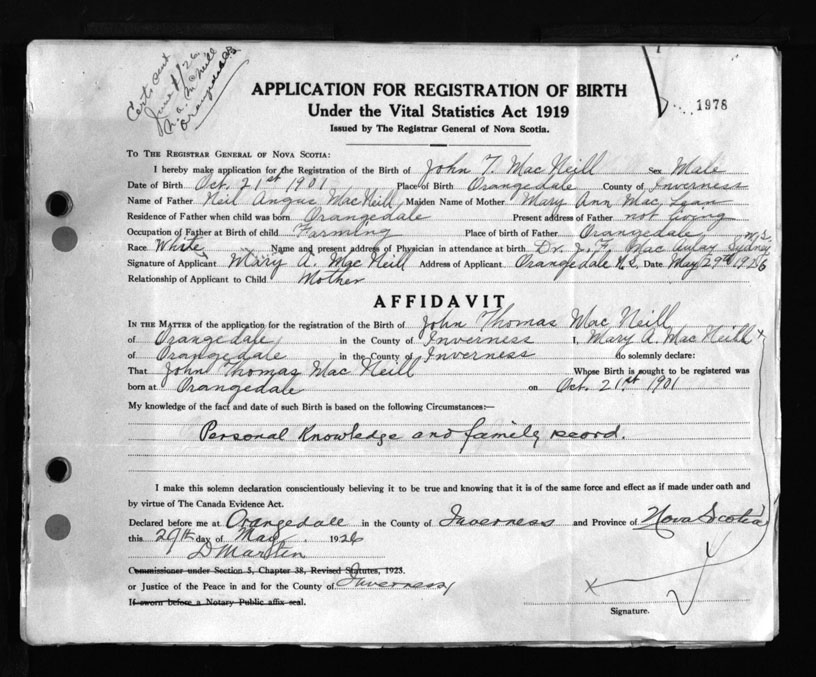 Cert sent
June 1/26
M. A. McNeill
Orangedale
APPLICATION FOR REGISTRATION OF BIRTH
Under the Vital Statistics Act 1919
1978
Issued by The Registrar General of Nova Scotia.
To The Registrar General of Nova Scotia:
I hereby make application for the Registration of the Birth of John T. Mac Neill Sex Male
Date of Birth Oct. 21st 1901 Place of Birth Orangedale County of Inverness
Name of Father Neil Angus MacNeill Maiden Name of Mother Mary Ann Mac Lean
Residence of Father when child was born Orangedale Present address of Father not living
Occupation of Father at Birth of child Farming Place of birth of Father Orangedale
Race White Name and present address of Physician in attendance at birth Dr. J. F. MacAulay Sydney N.S.
Signature of Applicant Mary A. MacNeill Address of Applicant Orangedale N.S. Date May 29th 1926
Relationship of Applicant to Child Mother
AFFIDAVIT
In the Matter of the application for the registration of the Birth of John Thomas Mac Neill
of Orangedale in the County of Inverness I, Mary A. MacNeill x
of Orangedale in the County of Inverness do solemnly declare:
That John Thomas Mac Neill Whose Birth is sought to be registered was
born at Orangedale on Oct. 21st 1901
My knowledge of the fact and date of such Birth is based on the following Circumstances:—
Personal Knowledge and family record.
I make this solemn declaration conscientiously believing it to be true and knowing that it is of the same force and effect as if made under oath and
by virtue of The Canada Evidence Act.
Declared before me at Orangedale in the County of Inverness and Province of Nova Scotia
this 29th day of May 1926
D Martin
Commissioner under Section 5, Chapter 38, Revised Statutes, 1923.
or Justice of the Peace in and for the County of Inverness
If sworn before a Notary Public affix seal.
x
Signature.